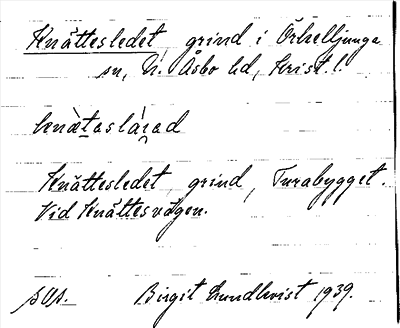 Knättesledet, grind i Örkelljunga
sn, N. Åsbo hd, Krist. l.
knàtaslárad
Knättesledet, grind, Turabygget.
Vid Knättesvägen.
sOs. Birgit Lundkvist 1939.